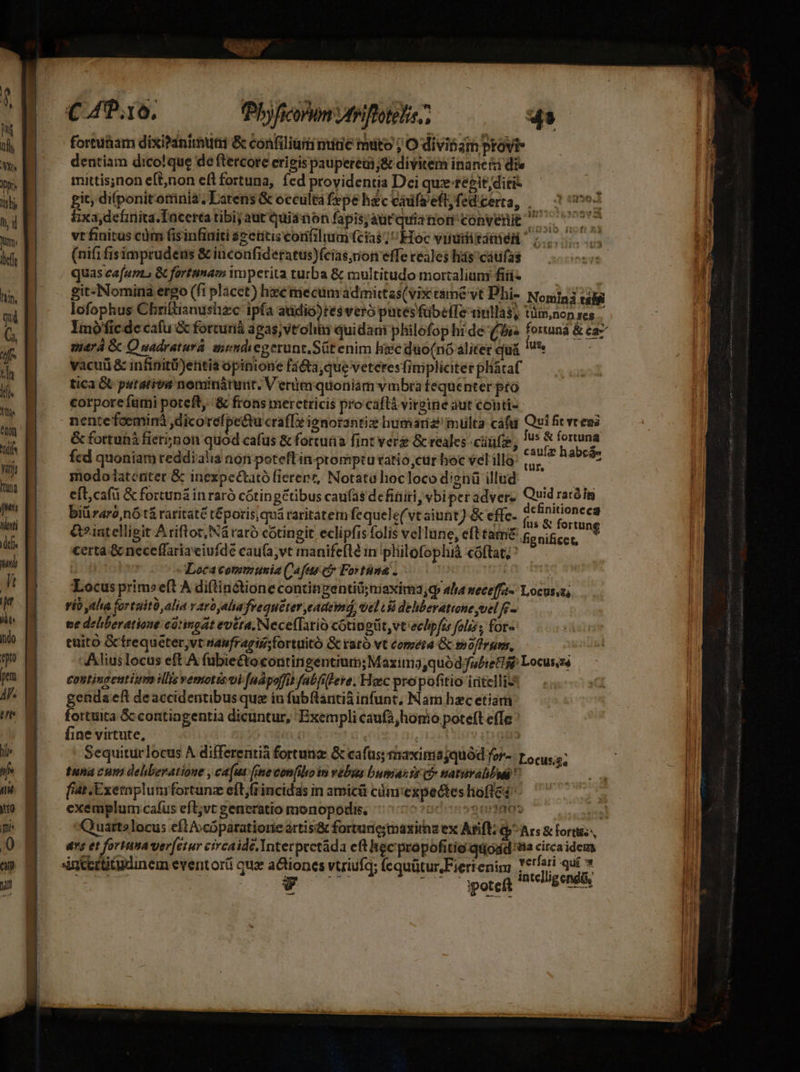 CAP.10. Physicorum Aristotelis, 41
fortunam dixi? animum & consilium nunc muto; O divinam provi-
dentiam dico! que de stercore erigis pauperem, & divitem inanem di-
mittis; non est, non est fortuna, sed providentia Dei quæ regit,diti-
git, disponit omnia. Latens & occulta sæpe hæc causa est, sed certa,
fixa, definita. Incerta tibi; aut quia non sapis; aut quia non convenit
vt finitus cùm sis infiniti agentis consilium scias.
(nisi sis imprudens & inconsideratus) scias, non esse reales has causas
quas casum & fortunam imperita turba & multitudo mortalium fin-
git. Nomina ergo (si placet) hæc mecum admittas (vix tamē vt Phi-
losophus Christianus hæc ipsa audio) res verò putes subesse nullas,
Imò sic de casu & fortunâ agas, vt olim quidam philosophi de
& Quadraturâ egerunt. Sūt enim hæc duo (nō aliter quā
vacuū & infinitū) entia opinione facta, que veteres simpliciter phātas-
tica & putativa nominârunt. Verùm quoniam vmbra sequenter pro
corpore sumi potest, & frons meretricis pro castâ virgine aut conti-
nente fœminâ, dico respectu crassæ ignorantiæ humanæ multa casu
& fortunâ fieri; non quòd casus & fortuna sint veræ & reales causæ,
sed quoniam reddi alia non potest in promptu ratio, cur hoc vel illo
modo latenter & inexpectatò fieret. Notatu hoc loco dignū illud
est, casū & fortunā in rarò cōtingētibus causas definiri, vbi per adver-
biū rarò, nō tā raritatē tēporis, quā raritatem sequele (vt aiunt) & effe-
ctus intelligit Aristot. Nā rarò cōtingit eclipsis solis vel lunæ, est tamē
certa & necessaria eiusdē causa, vt manifestè in philosophiâ cōstat.
Loca communia Casus & Fortunæ.
Locus primus est A distinctione contingentiū; maxima, quòd alia necessa-
riò, alia fortuitò, alia rarò, alia frequēter eademq́, vel cū deliberatione, vel si-
ne deliberatione cōtingāt evēta. Necessariò cōtingūt, vt eclipsis solis; for-
tuitò & frequēter, vt naufragiū; fortuitò & rarò vt cometa & mōstrum.
Alius locus est A subiecto contingentium; Maxima, quòd subiectū
contingentium illis remotis vi suâ possit subsistere. Hæc propositio intelli-
genda est de accidentibus quæ in substantiâ insunt. Nam hæc etiam
fortuita & contingentia dicuntur, Exempli causâ, homo potest esse
sine virtute.
Sequitur locus A differentiâ fortunæ & casus; maxima, quòd for-
tuna cum deliberatione, casus sine consilio in rebus humanis & naturalibus
fiat. Exemplum fortunæ est, si incidas in amicū cùm expectes hostes:
exemplum casus est, vt generatio monopodis.
Quartus locus est A cōparatione artis & fortunæ; maxima ex Arist.
ars et fortuna versetur circa idē. Interpretāda est hæc propositio quoad
incertitudinem eventorū quæ actiones vtriusq; sequūtur. Fieri enim
potest
Nomina
tūm, non res
fortunâ & ca-
sus.
Qui sit vt ens
sus & fortuna
causæ habeā-
tur.
Quid rarò in
definitione ca-
sus & fortunæ
significet.
Locus,1,
Locus,2
Locus,3.
Ars & fortuna
circa idem
versari quî
intelligendū,